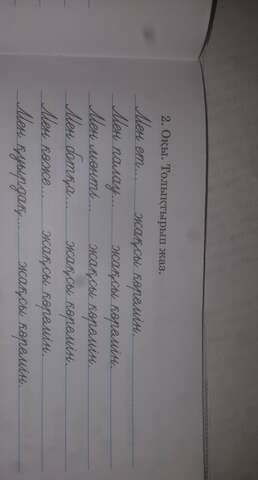 2. Оқы. Толықтырып жаз.
Мен ет... жақсы көремін.
Мен палау... жақсы көремін.
Мен мәнті... жақсы көремін.
Мен ботқа... жақсы көремін.
Мен көже... жақсы көремін.
Мен қуырдақ... жақсы көремін.